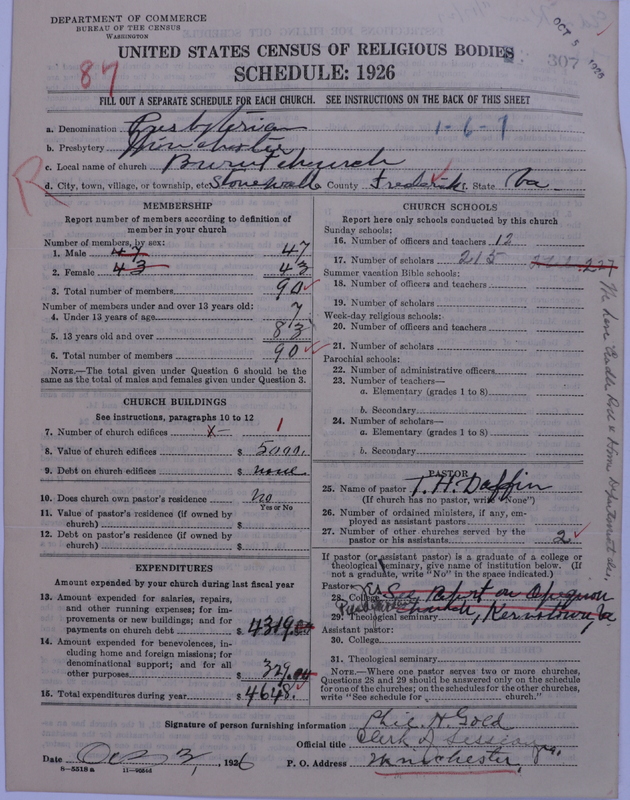 DEPARTMENT OF COMMERCE
BUREAU OF THE CENSUS
WASHINGTON
OCT 5 1926
307
UNITED STATES CENSUS OF RELIGIOUS BODIES
87
SCHEDULE: 1926
FILL OUT A SEPARATE SCHEDULE FOR EACH CHURCH. SEE INSTRUCTIONS ON THE BACK OF THIS SHEET
a. Denomination Presbyterian
1-6-7
b. Presbytery Winchester
c. Local name of church Burnt church
R
d. City, town, village, or township, etc. Stonewall County Frederick State Va
MEMBERSHIP
Report number of members according to definition of member in your church
Number of members, by sex:
1. Male 47 47
2. Female 43 43
3. Total number of members 90
Number of members under and over 13 years old:
4. Under 13 years of age 7
5. 13 years old and over 83
6. Total number of members 90
NOTE.—The total given under Question 6 should be
same as the total of males and females given under Question 3.
CHURCH BUILDINGS
See instructions, paragraphs 10 to 12
7. Number of church edifices 1
8. Value of church edifices $ 5000.
9. Debt on church edifices $ none
10. Does church own pastor's residence no
Yes or No
11. Value of pastor's residence (if owned by
church) $
12. Debt on pastor's residence (if owned by
church) $
EXPENDITURES
Amount expended by your church during last fiscal year
13. Amount expended for salaries, repairs,
and other running expenses; for im-
provements or new buildings; and for
payments on church debt $ 4319.
14. Amount expended for benevolences, in-
cluding home and foreign missions; for
denominational support; and for all
other purposes $ 329.04
15. Total expenditures during year $ 4648.
CHURCH SCHOOLS
Report here only schools conducted by this church
Sunday schools:
16. Number of officers and teachers 12
17. Number of scholars 215
Summer vacation Bible schools:
18. Number of officers and teachers
19. Number of scholars
Week-day religious schools:
20. Number of officers and teachers
21. Number of scholars
Parochial schools:
22. Number of administrative officers
23. Number of teachers—
a. Elementary (grades 1 to 8)
b. Secondary
24. Number of scholars—
a. Elementary (grades 1 to 8)
b. Secondary
PASTOR
25. Name of pastor T. H. Daffin
(If church has no pastor, write "None")
26. Number of ordained ministers, if any, em-
ployed as assistant pastors
27. Number of other churches served by the
pastor or his assistants 2
If pastor (or assistant pastor) is a graduate of a college or
theological seminary, give name of institution below. (If
not a graduate, write "No" in the space indicated.)
Pastor:
28. College See Report on Opequon
29. Theological seminary church, Kernstown, Va
Assistant pastor:
30. College
31. Theological seminary
NOTE.—Where one pastor serves two or more churches,
Questions 28 and 29 should be answered only on the schedule
for one of the churches; on the schedules for the other churches,
write "See schedule for church."
Signature of person furnishing information Phil H Gold
Official title Clerk of Session
Date Oct 2, 1926
P. O. Address Winchester, Va.
8-5518 a